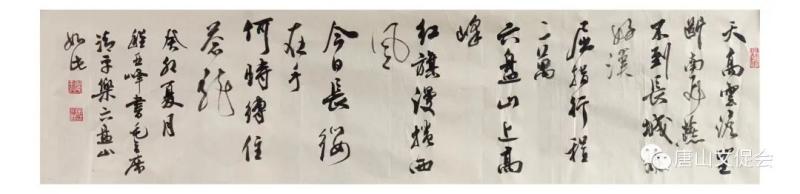 天高雲淡望
斷南飛燕
不到長城非
好漢
屈指行程
二萬
六盤山上高
峰
紅旗漫捲西
風
今日長纓
在手
何時縛住
蒼龍
癸卯夏月
峰書毛主席
清平樂六盤山
如此
唐山文促会